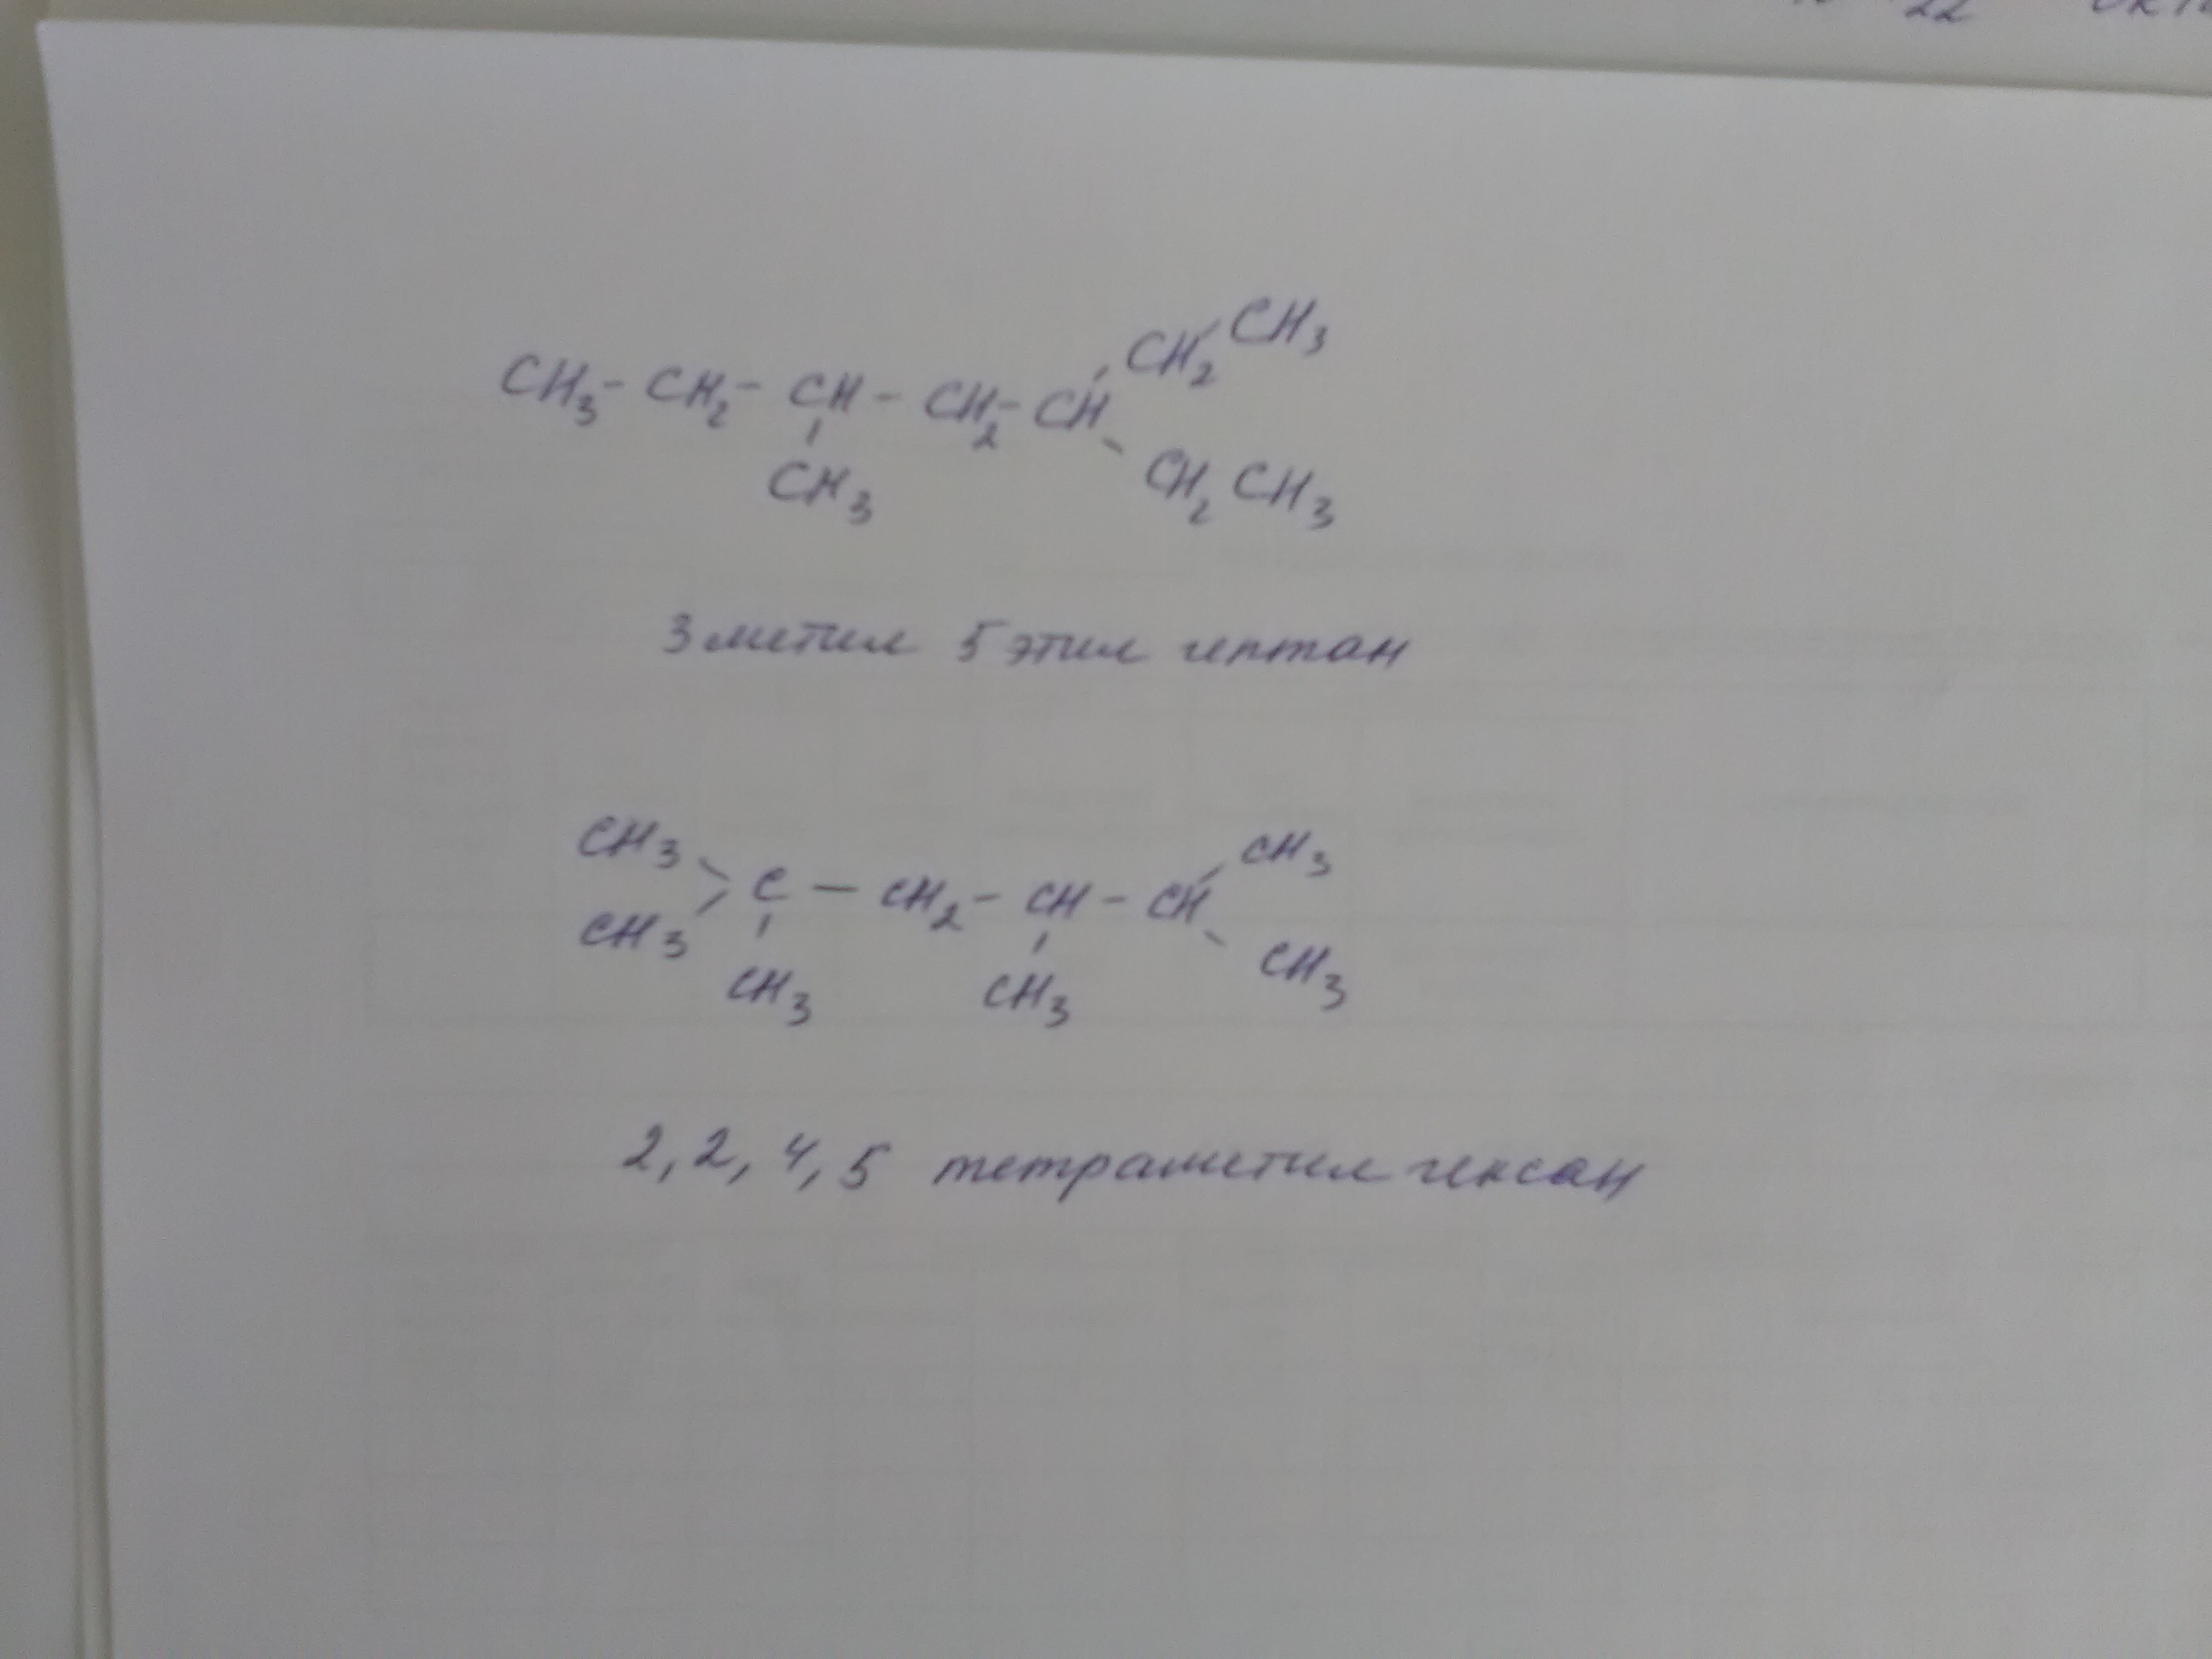 22
CH3 - CH2 - CH - CH2 - CH
CH2 CH3
CH3
CH2 CH3
3 метил 5 этил гептан
CH3
CH3
C — CH2 - CH - CH
CH3
CH3
CH3
CH3
2, 2, 4, 5 тетраметил гексан